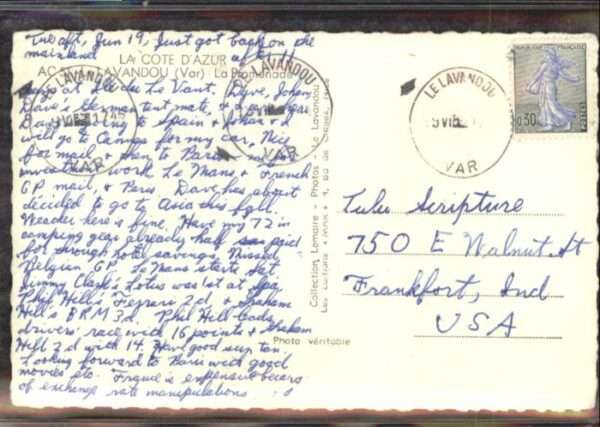 Tue aft, Jun 19, Just got back on the
mainland after 4
LA COTE D'AZUR
LAVANDOU (Var) La Promenade
days at Ile du Le Vant, Dave, John,
Dave's German tent mate, &
are going to Spain, & John & I
will go to Cannes for my car, Nice
for mail & then to Paris
work Le Mans & French
GP mail, & Paris. Dave has about
decided to go to Asia this fall.
Weather here is fine. Have my 72 in
camping gear already half paid
for through hotel savings. Missed
Belgium GP. Le Mans starts Sat.
Jimmy Clark's Lotus was 1st at Spa,
Phil Hill's Ferrari 2d, & Graham
Hill's BRM 3d. Phil Hill leads
drivers' race with 16 points & Graham
Hill 2d with 14. Have good sun tan.
Looking forward to Paris with good
movies etc. France is expensive because
of exchange rate manipulations
LE LAVANDOU
VAR
LAVANDOU
VAR
LE LAVANDOU
VAR
FRANÇAISE
0,30
Collection Lemaire - Photos - Le Lavandou
Photo véritable
Lulu Scripture
750 E Walnut St
Frankfort, Ind
USA